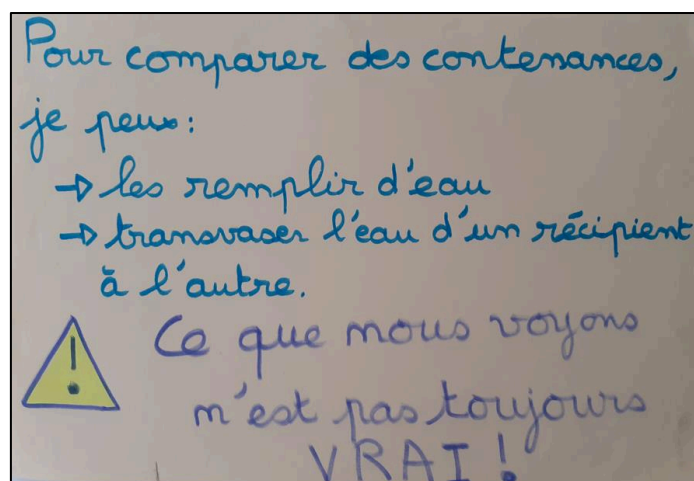 Pour comparer des contenances,
je peux:
→ les remplir d'eau
→ transvaser l'eau d'un récipient
à l'autre.
!
Ce que nous voyons
n'est pas toujours
VRAI !